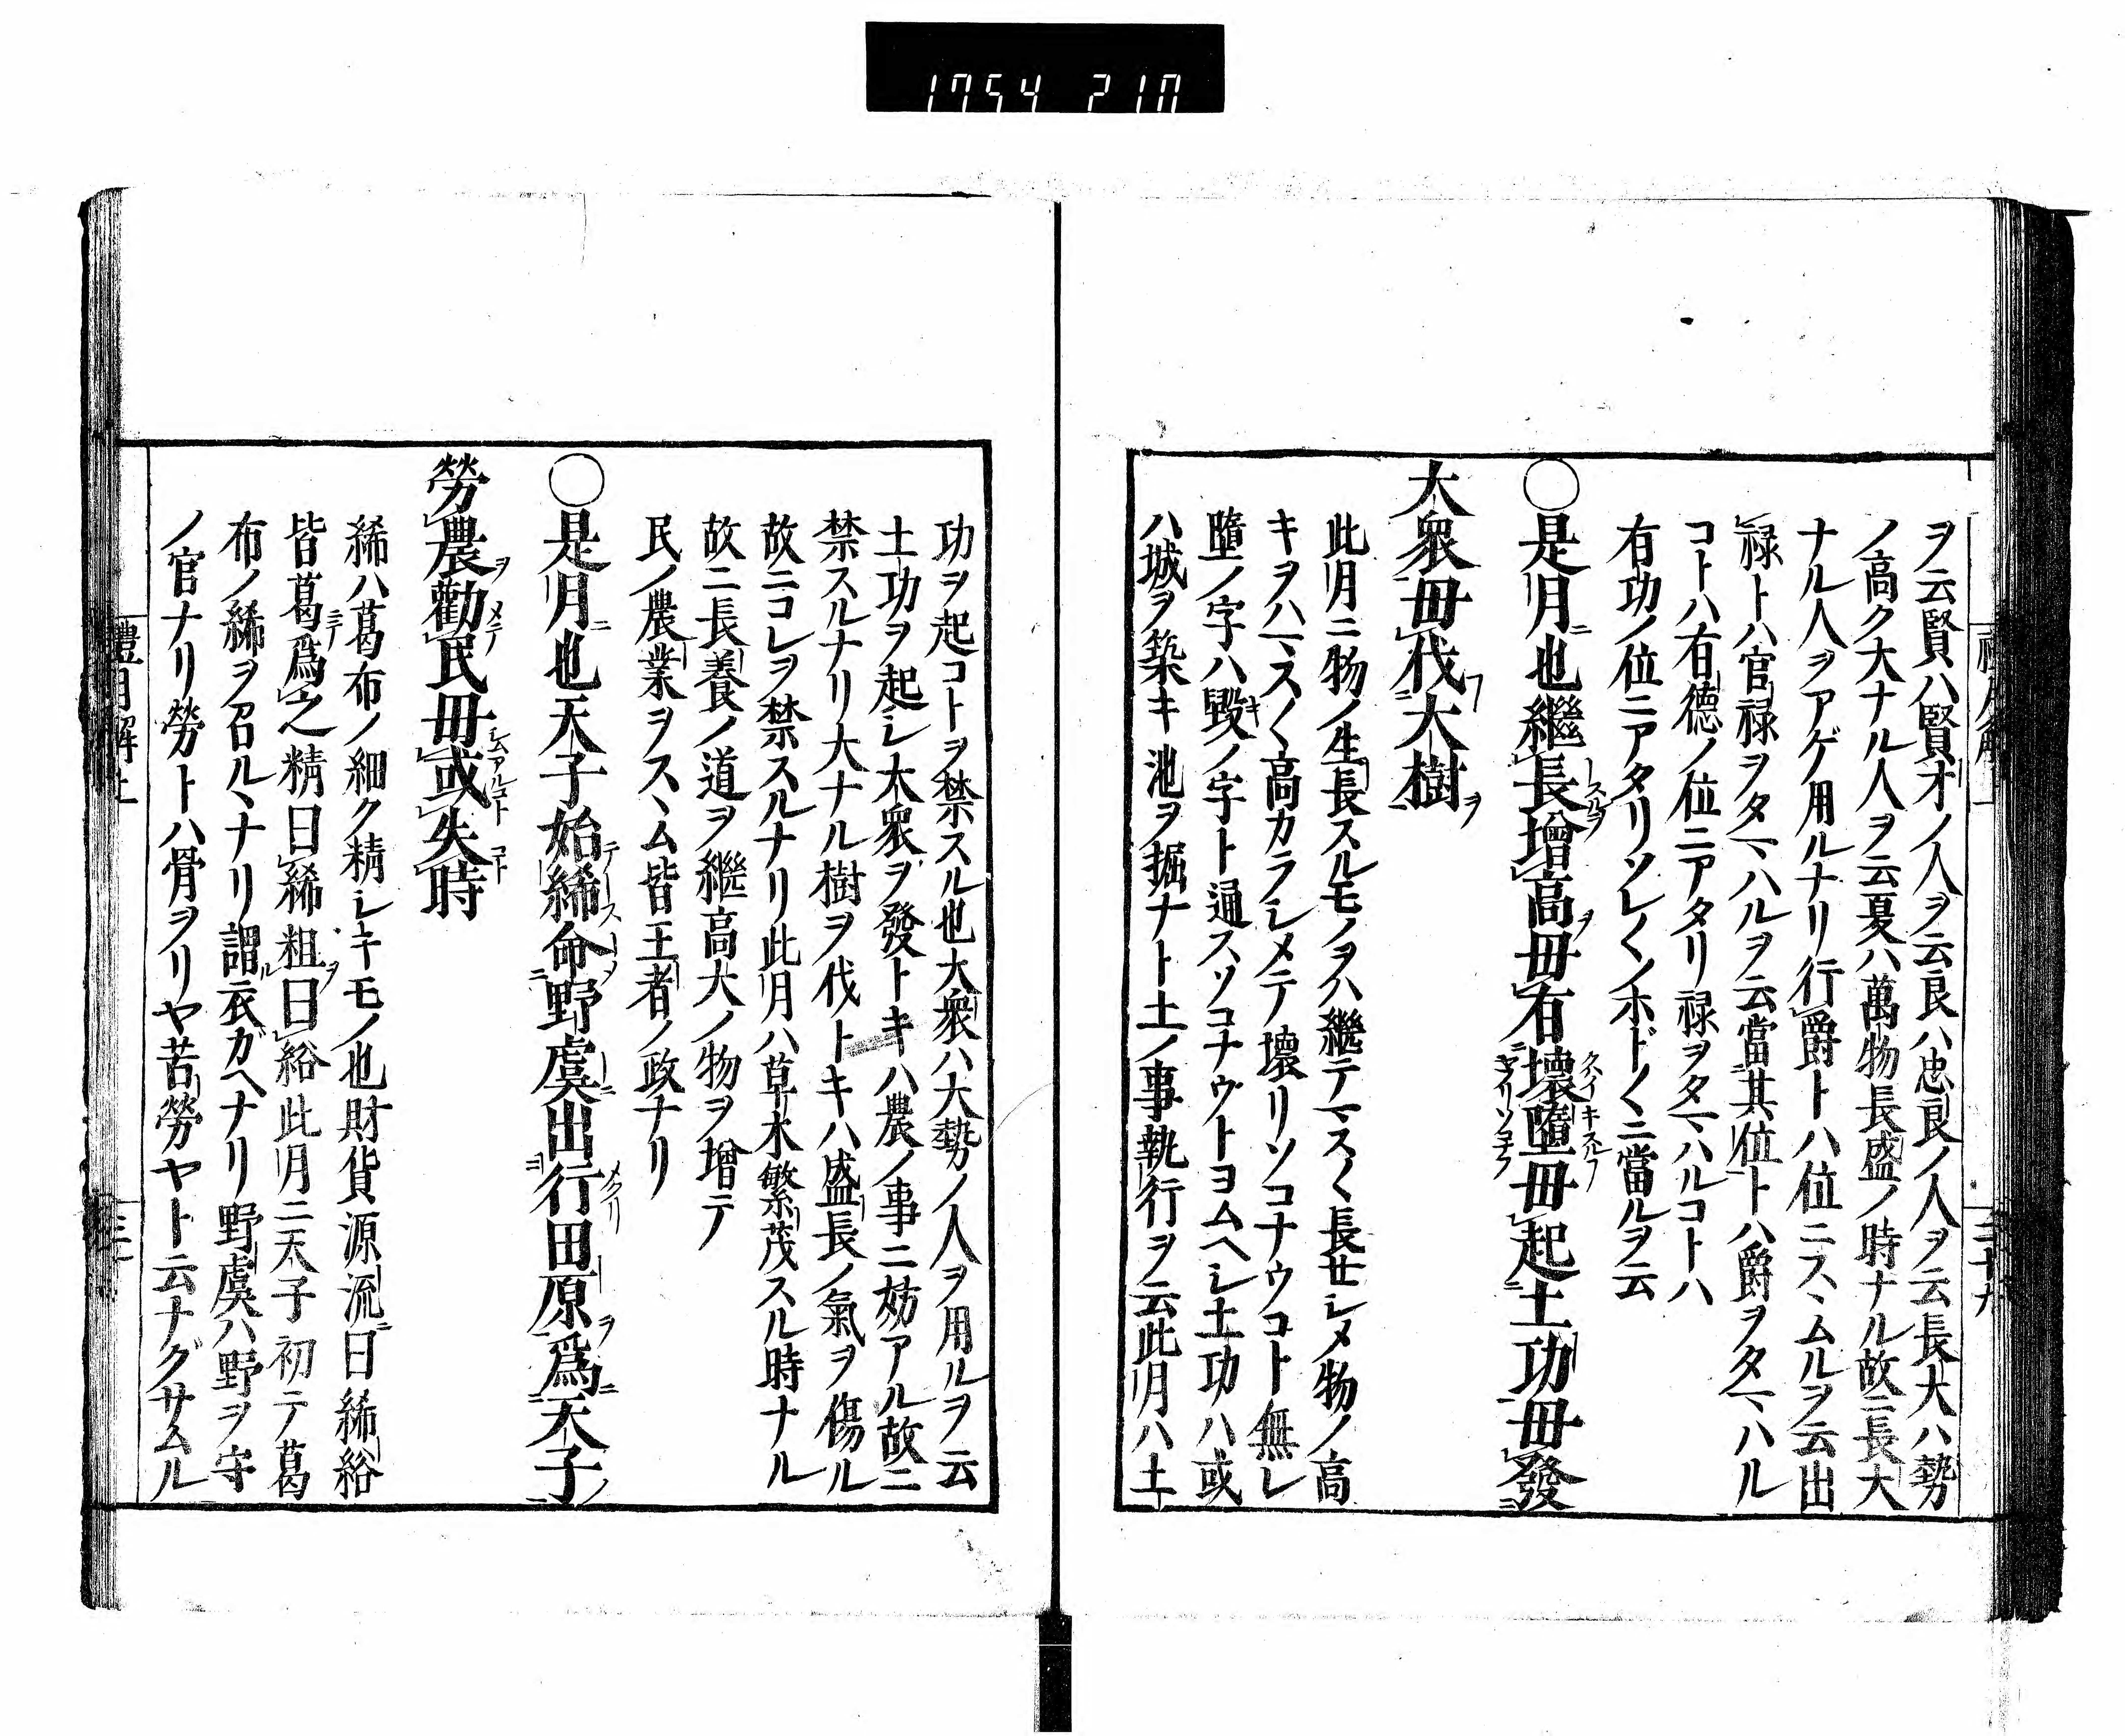 1754 210
ヲ云賢ハ賢才ノ人ヲ云良ハ忠良ノ人ヲ云長大ハ勢
ノ高ク大ナル人ヲ云夏ハ萬物長盛ノ時ナル故ニ長大
ナル人ヲアゲ用ルナリ行爵トハ位ニスヽムルヲ云出
禄トハ官禄ヲタマハルヲ云當其位トハ爵ヲタマハル
コトハ有德ノ位ニアタリ禄ヲタマハルコトハ
有功ノ位ニアタリソレ〱ノホド〱ニ當ルヲ云
○是月也繼長增高毋有壞墮毋起土功毋發
大衆毋伐大樹
此月ニ物ノ生長スルモノヲハ繼テマス〱長セシメ物ノ高
キヲハマス〱高カラシメテ壞リソコナウコト無レ
墮ノ字ハ毀ノ字ト通スソコナウトヨムヘシ土功ハ或
ハ城ヲ築キ池ヲ掘ナト土ノ事執行ヲ云此月ハ土
功ヲ起コトヲ禁スル也大衆ハ大勢ノ人ヲ用ルヲ云
土功ヲ起シ大衆ヲ發トキハ農ノ事ニ妨アル故ニ
禁スルナリ大ナル樹ヲ伐トキハ盛長ノ氣ヲ傷ル
故ニコレヲ禁スルナリ此月ハ草木繁茂スル時ナル
故ニ長養ノ道ヲ繼高大ノ物ヲ增テ
民ノ農業ヲスヽム皆王者ノ政ナリ
○是月也天子始絺命野虞出行田原爲天子
勞農勸民毋或失時
絺ハ葛布ノ細ク精シキモノ也財貨源流曰絺綌
皆葛爲之精曰絺粗曰綌此月ニ天子初テ葛
布ノ絺ヲ召ルヽナリ謂衣ガヘナリ野虞ハ野ヲ守
ノ官ナリ勞トハ骨ヲリヤ苦勞ヤト云ナグサムル
禮月解上